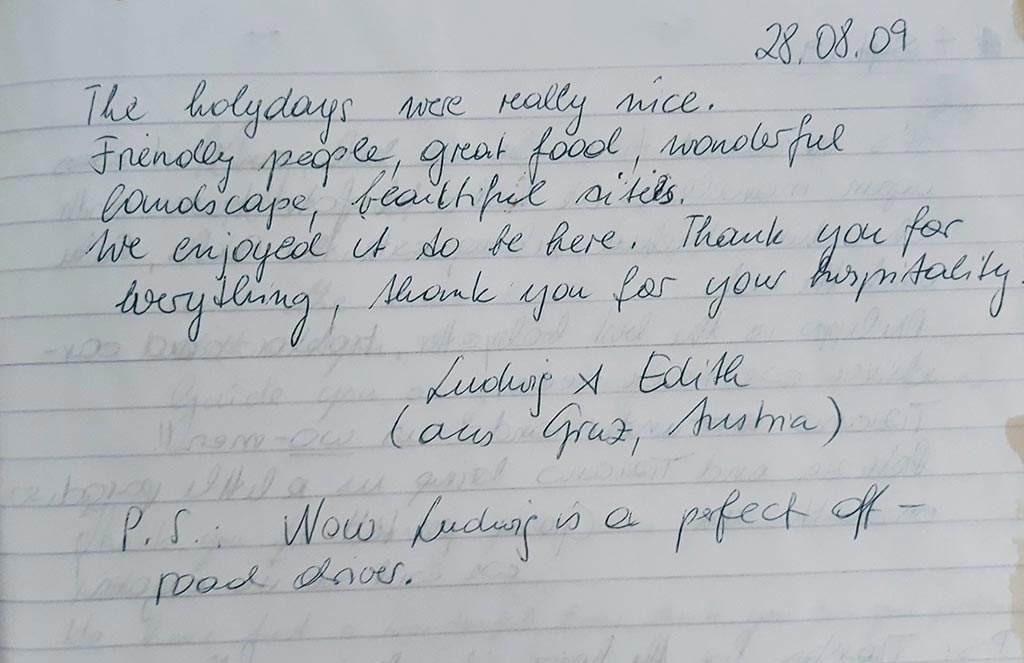 28.08.09
The holydays were really nice.
Friendly people, great food, wonderful
landscape, beautiful sities.
We enjoyed it to be here. Thank you for
everything, thank you for your hospitality.
Ludwig & Edith
(aus Graz, Austria)
P.S.: Now Ludwig is a perfect off-
road driver.